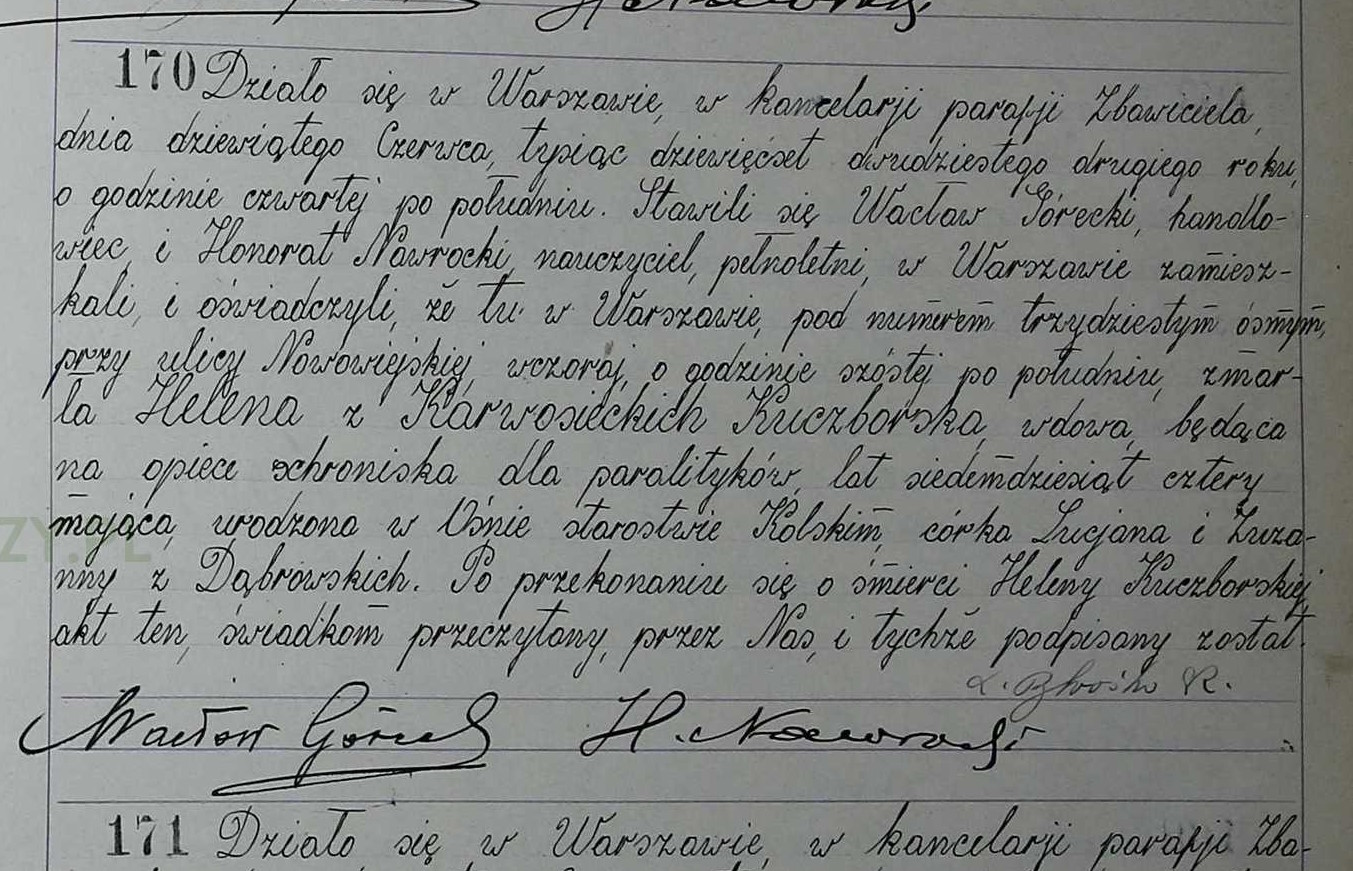 H Nawrocki
170 Działo się w Warszawie, w kancelarji parafji Zbawiciela,
dnia dziewiątego Czerwca, tysiąc dziewięćset dwudziestego drugiego roku,
o godzinie czwartej po południu. Stawili się Wacław Górecki, handlo-
wiec, i Honorat Nawrocki, nauczyciel, pełnoletni, w Warszawie zamiesz-
kali, i oświadczyli, że tu w Warszawie, pod numerem trzydziestym ósmym,
przy ulicy Nowowiejskiej, wczoraj, o godzinie szóstej po południu, zmar-
ła Helena z Karwosieckich Kuczborska, wdowa, będąca
na opiece schroniska dla paralityków, lat siedemdziesiąt cztery
mająca, urodzona w Uśnie starostwie Kolskim, córka Lucjana i Zuza-
ZY.PL
nny z Dąbrowskich. Po przekonaniu się o śmierci Heleny Kuczborskiej,
akt ten, świadkom przeczytany, przez Nas, i tychże podpisany został.
Wacław Górecki H. Nawrocki
171 Działo się w Warszawie, w kancelarji parafji Zba-